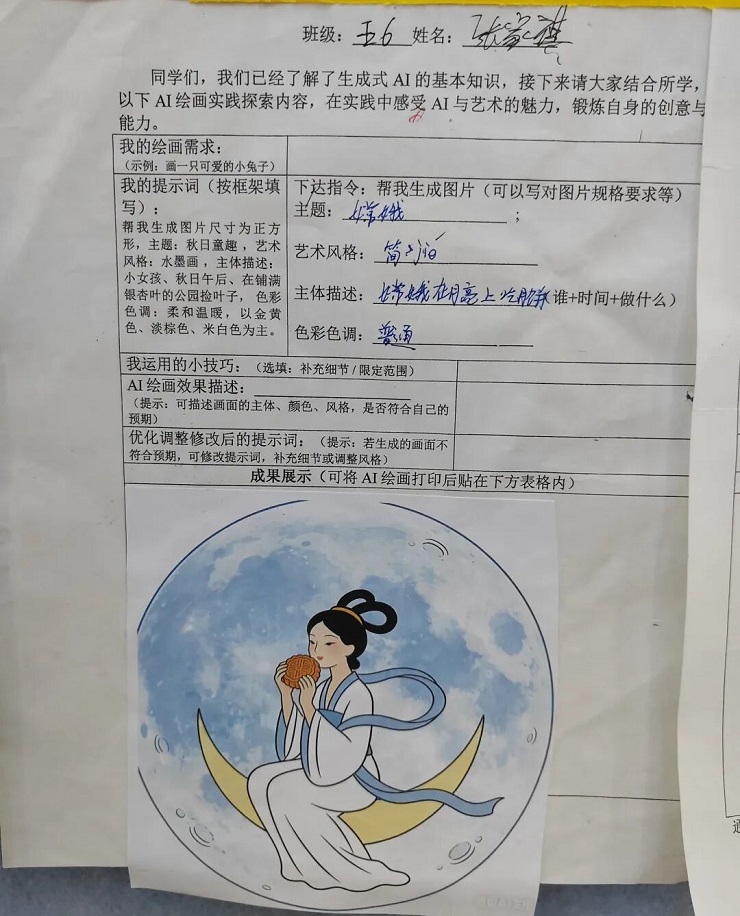 班级：五6 姓名：张家祺
同学们，我们已经了解了生成式 AI 的基本知识，接下来请大家结合所学，
以下 AI 绘画实践探索内容，在实践中感受 AI 与艺术的魅力，锻炼自身的创意与
能力。
我的绘画需求：
（示例：画一只可爱的小兔子）
我的提示词（按框架填
写）：
帮我生成图片尺寸为正方
形，主题：秋日童趣，艺术
风格：水墨画，主体描述：
小女孩、秋日午后、在铺满
银杏叶的公园捡叶子，色彩
色调：柔和温暖，以金黄
色、淡棕色、米白色为主。
下达指令：帮我生成图片（可以写对图片规格要求等）
主题：嫦娥；
艺术风格：简
主体描述：嫦娥在月亮上吃月饼 谁+时间+做什么）
色彩色调：普通
我运用的小技巧：（选填：补充细节/限定范围）
AI 绘画效果描述：
（提示：可描述画面的主体、颜色、风格，是否符合自己的
预期）
优化调整修改后的提示词：（提示：若生成的画面不
符合预期，可修改提示词，补充细节或调整风格）
成果展示（可将 AI 绘画打印后贴在下方表格内）